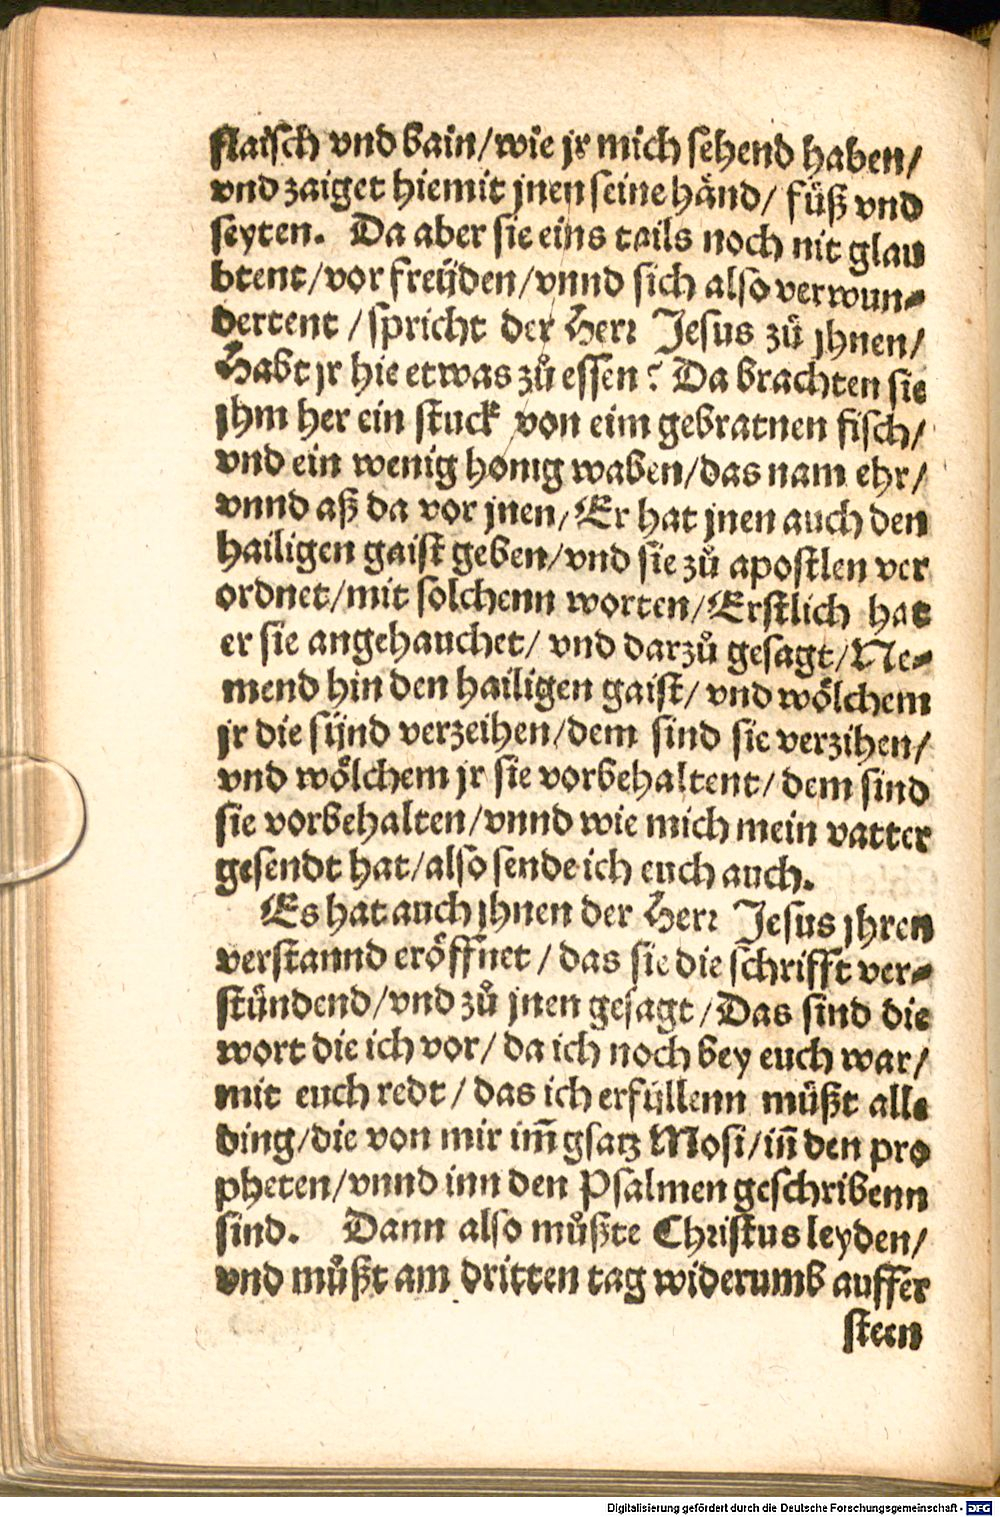 flaisch vnd bain/wie jr mich sehend haben/
vnd zaiget hiemit jnen seine händ/ füß vnd
seyten. Da aber sie eins tails noch nit glau
btent/vor freüden/vnnd sich also verwun⸗
dertent /spricht der Herr Jesus zů jhnen/
Habt jr hie etwas zů essen? Da brachten sie
jhm her ein stuck von eim gebratnen fisch/
vnd ein wenig honig waben/das nam ehr/
vnnd aß da vor jnen/Er hat jnen auch den
hailigen gaist geben/vnd sie zů apostlen ver
ordnet/mit solchenn worten/Erstlich hat
er sie angehauchet/ vnd darzů gesagt/Ne⸗
mend hin den hailigen gaist/ vnd wölchem
jr die sünd verzeihen/dem sind sie verzihen/
vnd wölchem jr sie vorbehaltent/ dem sind
sie vorbehalten/vnnd wie mich mein vatter
gesendt hat/also sende ich euch auch.
Es hat auch jhnen der Herr Jesus jhren
verstannd eröffnet / das sie die schrifft ver⸗
stündend/vnd zů jnen gesagt /Das sind die
wort die ich vor/ da ich noch bey euch war/
mit euch redt / das ich erfüllenn müßt alle
ding/die von mir im̃ gsatz Mosi/iñ den pro
pheten/vnnd inn den Psalmen geschribenn
sind. Dann also můßte Christus leyden/
vnd můßt am dritten tag widerumb auffer
steen
Digitalisierung gefördert durch die Deutsche Forschungsgemeinschaft - DFG